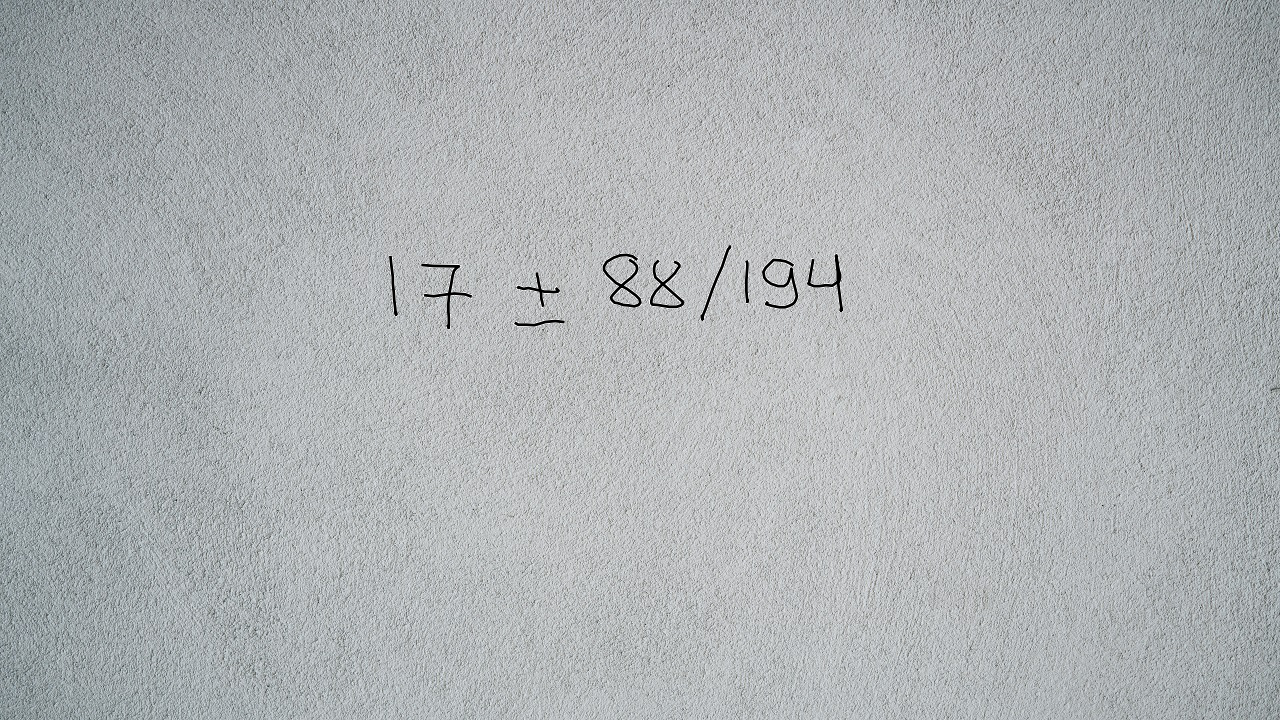 17 ± 88/194